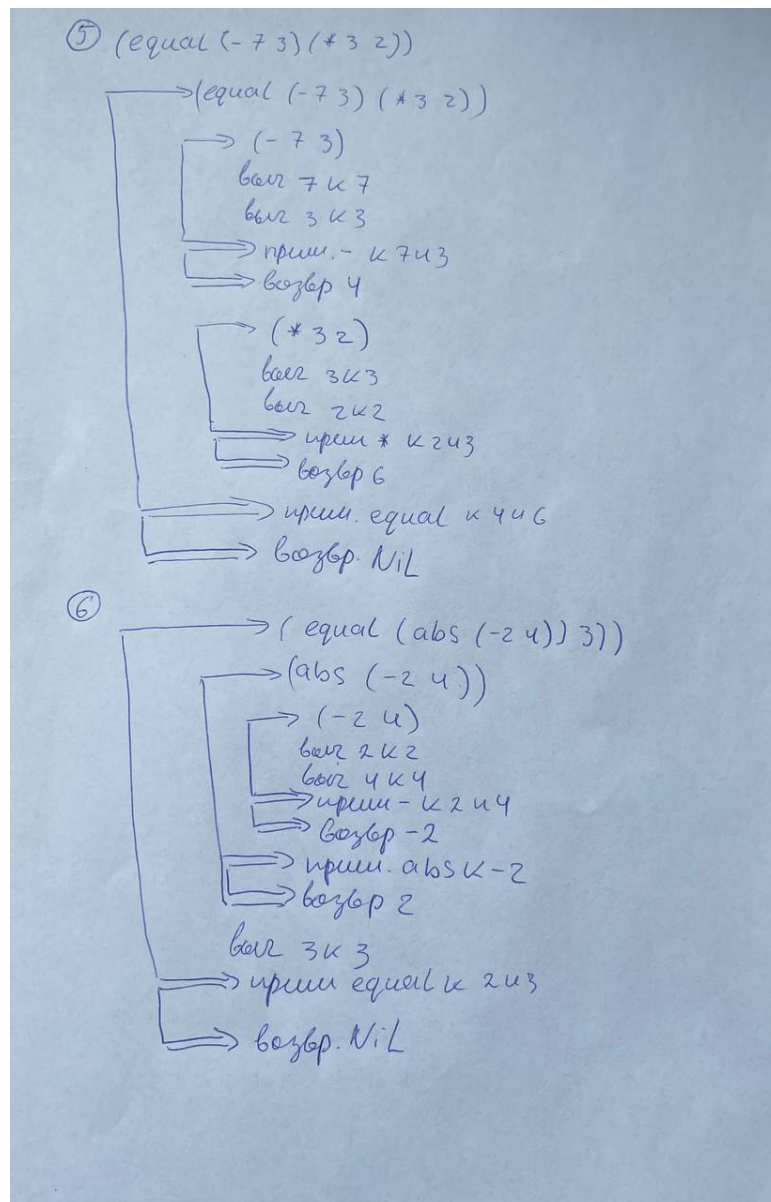 ⑤ (equal (- 7 3) (* 3 2))
(equal (- 7 3) (* 3 2))
(- 7 3)
выч 7 к 7
выч 3 к 3
прим. - к 7 и 3
возвр 4
(* 3 2)
выч 3 к 3
выч 2 к 2
прим * к 2 и 3
возвр 6
прим. equal к 4 и 6
возвр. NiL
⑥
( equal (abs (-2 4)) 3))
(abs (-2 4))
(-2 4)
выч 2 к 2
выч 4 к 4
прим - к 2 и 4
возвр -2
прим. abs к -2
возвр 2
выч 3 к 3
прим equal к 2 и 3
возвр. NiL